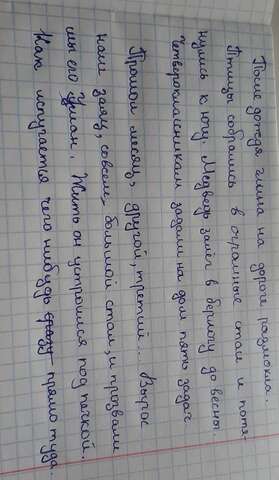 После дождя глина на дороге размокла.
Птицы собрались в огромные стаи и потя-
нулись к югу. Медведь залёг в берлогу до весны.
Четвероклассникам задали на дом пять задач
Прошол месяц, другой, третий... Вырос
наш заяц, совсем большой стал, и прозвали
мы его Уман. Жить он устроился под печкой.
Как испугается чего нибудь сразу прямо туда.